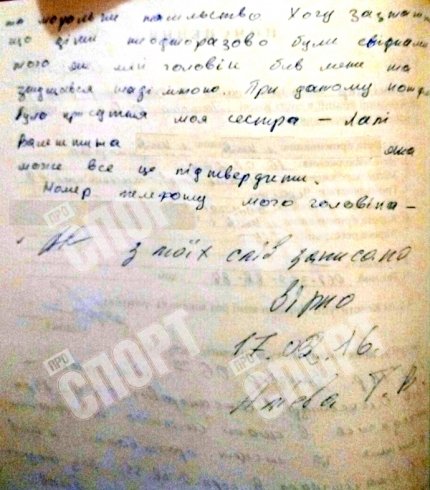 та моральне насильство. Хочу зазначити
що діти неодноразово були свідками
того як мій чоловік бив мене та
знущався наді мною. При даному
була присутня моя сестра –
Валентина яка
може все це підтвердити.
Номер телефону мого чоловіка –
з моїх слів записано
вірно
17.02.16.
ПРО
СПОРТ
ПРО
СПОРТ
ПРО
СПОРТ
ПРО
СПОРТ